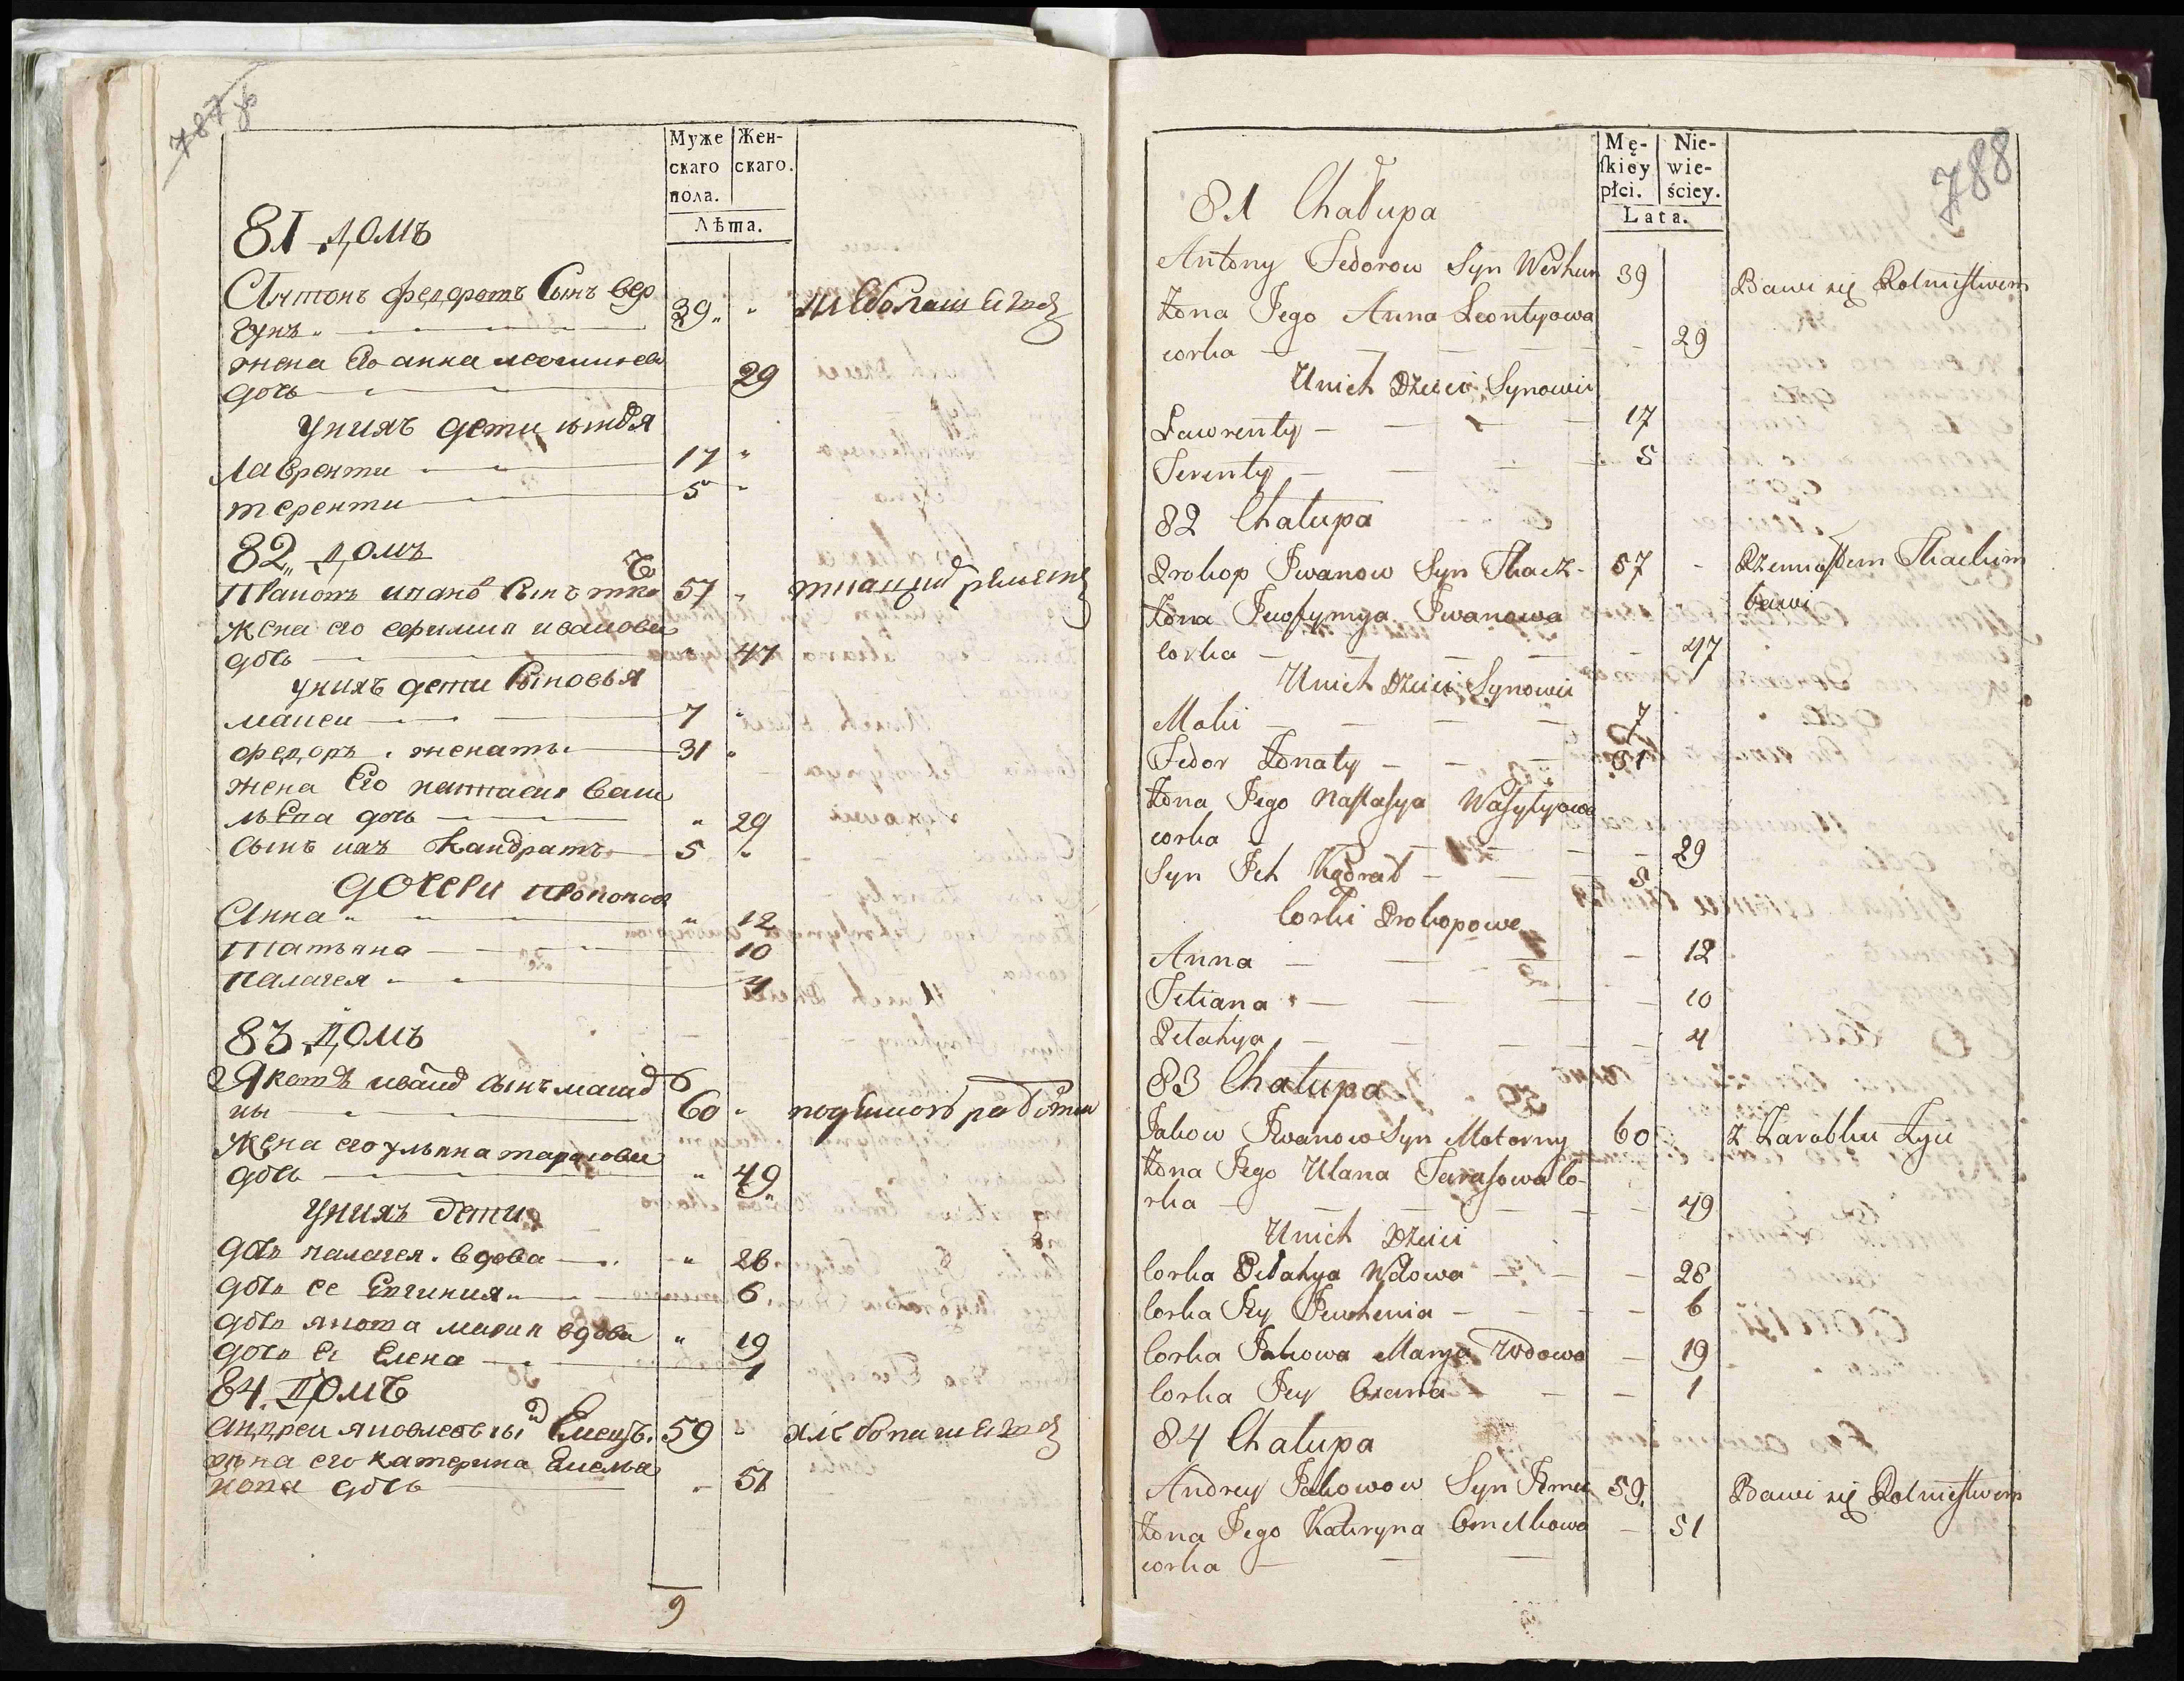 787
Муже
скаго
пола.
Жен-
скаго.
Лѣта.
81 домъ
Антонъ федоровъ Сынъ вер
гунъ 39
хлебопашецъ
жена Его анна леонтиева
дочь 29
уних дети сынвя
лаврентии 17
терентии 5
82 домъ
Пракопъ иванов Сынъ ткачъ 57
ткацкид ремесне
жена его ефимия иванова
дочь 47
уних дети Сыновья
макеи 7
федоръ женаты 31
жена Его настасия васи
льева дочь 29
Сынъ их Кандратъ 5
дочери пракопов
Анна 12
Татьяна 10
палагея 4
83 домъ
Яковъ иванов сынъ матор
ны 60
подённой работы
жена его ульяна тарасова
дочь 49
уних дети
дочь палагея вдова 28
дочь ее Евгиния 6
дочь якова мария вдова 19
дочь Ее Елена 1
84 домъ
андреи яковлевъ сы Емецъ 59
хлебопашецъ
жена его катерина Емелья
нова дочь 51
9
788
Mę-
skiey
płci.
Nie-
wie-
ściey.
Lata.
81 Chałupa
Antony Fedorow Syn Werhun 39 Bawi się Rolnistwem
Żona Jego Anna Leontyowa
corka 29
Unich Dzieci Synowie
Lawrenty 17
Terenty 5
82 Chałupa
Prokop Iwanow Syn Tkacz 57 Rzemiosłem Tkackim
bawi
Żona Jewfymya Iwanowa
Corka 47
Unich Dzieci Synowie
Moki 7
Fedor Żonaty 31
Żona Jego Nastasya Wasylyowa
corka 29
Syn Ich Kądrat 5
Corki Prokopowe
Anna 12
Tetiana 10
Pelahya 4
83 Chałupa
Jakow Iwanow Syn Motorny 60 z Zarobku Zyie
Żona Jego Ulana Tarasowa Co-
rka 49
Unich Dzieci
Corka Pelahya Wdowa 28
Corka Jey Jewhenia 6
Corka Jakowa Marya Wdowa 19
Corka Jey Ołena 1
84 Chałupa
Andrey Jakowow Syn Jemec 59 Bawi się Rolnistwem
Żona Jego Kateryna Omelkowa 51
corka